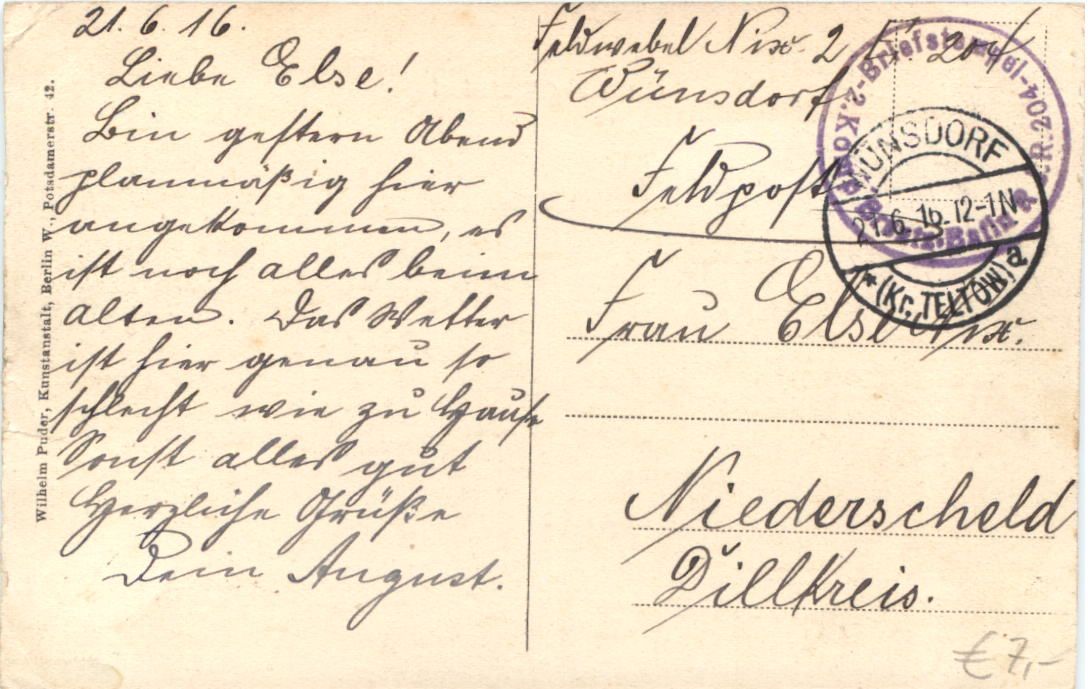 21.6.16.
Liebe Else!
Bin gestern Abend
planmäßig hier
angekommen, es
ist noch alles beim
alten. Das Wetter
ist hier genau so
schlecht wie zu Hause
Sonst alles gut
Herzliche Grüße
Dein August.
Wilhelm Puder, Kunstanstalt, Berlin W., Potsdamerstr. 42.
Feldwebel Nix. 2 204
Wünsdorf
Feldpost
Frau Else Nix.
Niederscheld
Dillkreis.
-Briefstempel-
WÜNSDORF
21.6.16.12-1N
*(Kr. TELTOW) a
€ 7,-